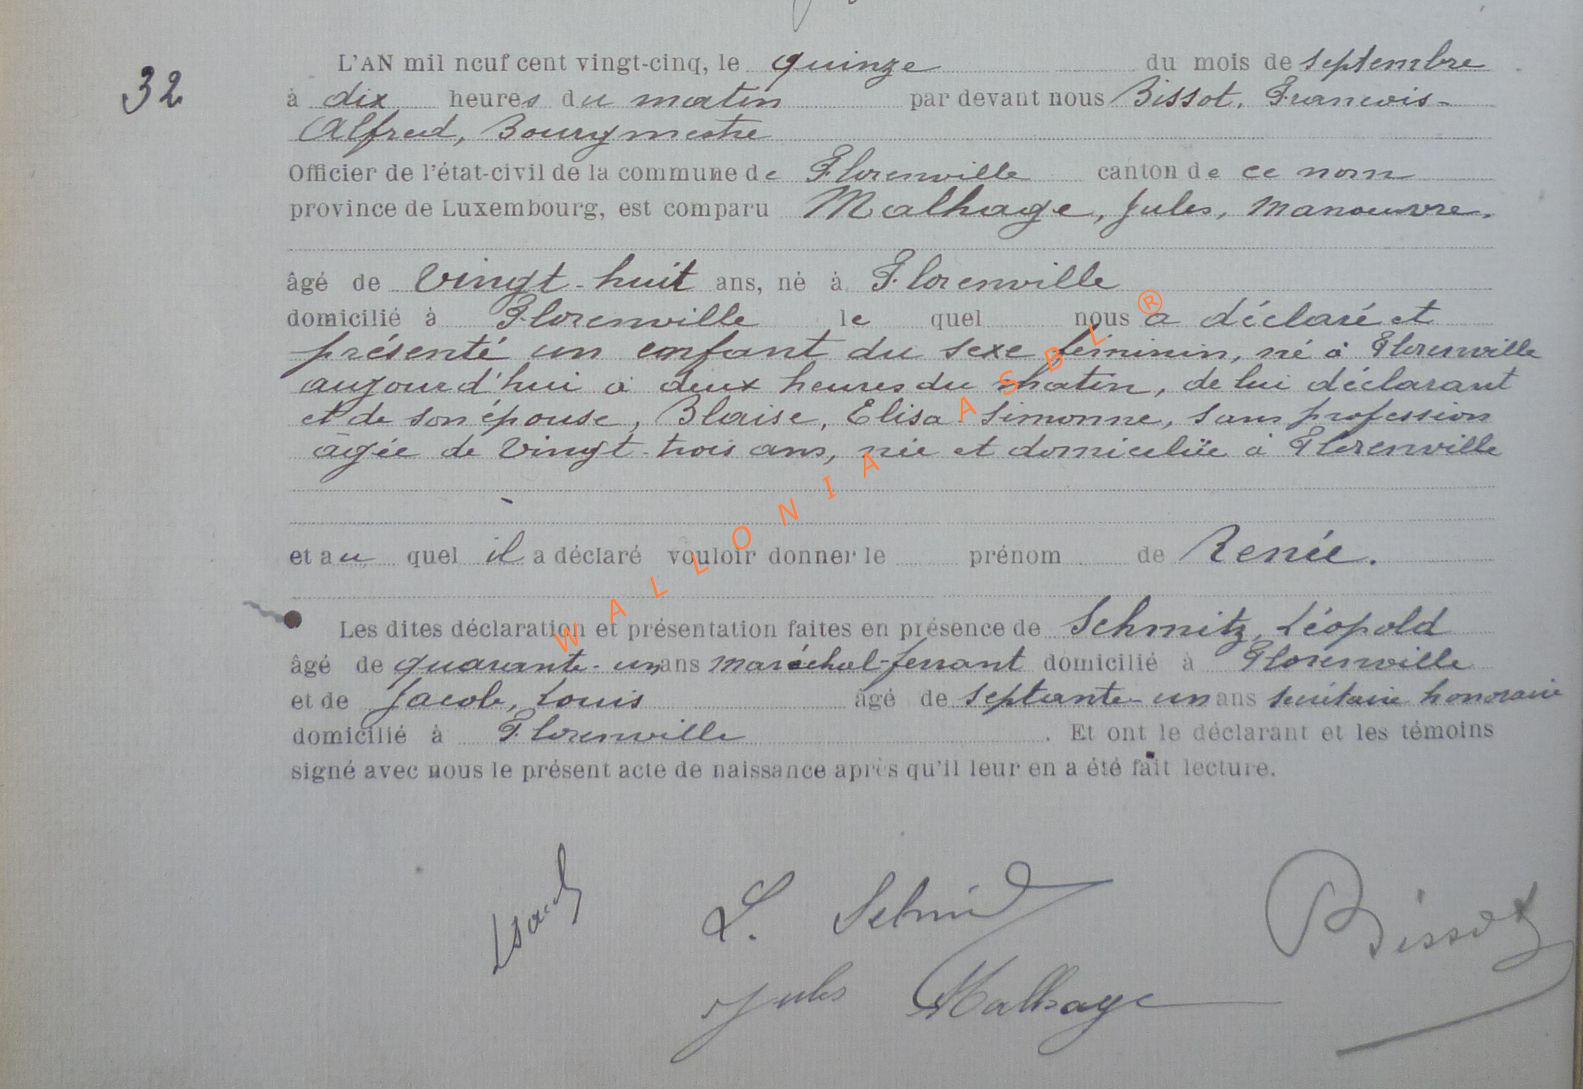 32
L'AN mil neuf cent vingt-cinq, le quinze du mois de septembre
à dix heures du matin par devant nous Bissot, Francois-
Alfred, Bourgmestre
Officier de l'état-civil de la commune de Florenville canton de ce nom
province de Luxembourg, est comparu Malhage, Jules, Manouvre.
âgé de Vingt-huit ans, né à Florenville
domicilié à Florenville le quel nous a déclaré et
présenté un enfant du sexe féminin, né à Florenville
aujourd'hui à deux heures du matin, de lui déclarant
et de son épouse, Blaise, Elisa Simonne, sans profession
âgée de Vingt-trois ans, née et domiciliée à Florenville
et au quel il a déclaré vouloir donner le prénom de Renée.
Les dites déclaration et présentation faites en présence de Schmitz, Léopold
âgé de quarante-un ans maréchal-ferrant domicilié à Florenville
et de Jacob, Louis âgé de septante-un ans secrétaire honoraire
domicilié à Florenville. Et ont le déclarant et les témoins
signé avec nous le présent acte de naissance après qu'il leur en a été fait lecture.
WALLONIA ASBL ®
L. Schmitz
Bissot
Jules Malhage